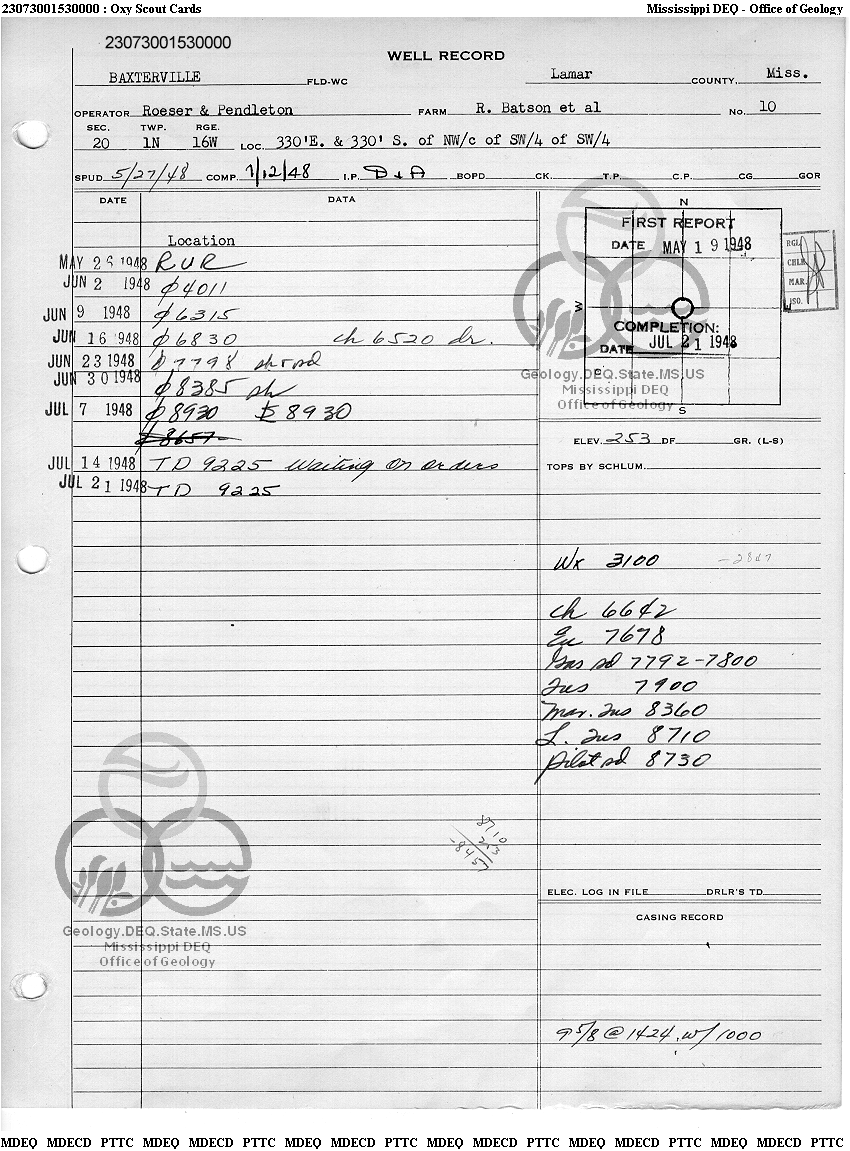 23073001530000 : Oxy Scout Cards Mississippi DEQ - Office of Geology
23073001530000
WELL RECORD
BAXTERVILLE FLD-WC Lamar COUNTY, Miss.
OPERATOR Roeser & Pendleton FARM R. Batson et al No. 10
SEC. TWP. RGE.
20 1N 16W LOC. 330'E. & 330' S. of NW/c of SW/4 of SW/4
SPUD 5/27/48 COMP. 7/12/48 I.P. D & A BOPD CK. T.P. C.P. CG GOR
DATE DATA
N
FIRST REPORT
DATE MAY 19 1948
RGL.
CHLK.
MAR.
ISO.
W
COMPLETION:
DATE JUL 21 1948
S
Location
MAY 26 1948 RUR
JUN 2 1948 ϕ 4011
JUN 9 1948 ϕ 6315
JUN 16 1948 ϕ 6830 Ch 6520 dr.
JUN 23 1948 ϕ 7798 sh & sd
JUN 30 1948 ϕ 8385 sh
JUL 7 1948 ϕ 8930 E 8930
ϕ 8657
JUL 14 1948 TD 9225 Waiting on orders
JUL 21 1948 TD 9225
Geology.DEQ.State.MS.US
Mississippi DEQ
Office of Geology
ELEV. 253 DF GR. (L-S)
TOPS BY SCHLUM.
Wx 3100 -2847
Ch 6642
Eu 7678
Gas sd 7792-7800
Tus 7900
Mar. Tus 8360
L. Tus 8710
Pilot sd 8730
8710
253
-8457
Geology.DEQ.State.MS.US
Mississippi DEQ
Office of Geology
ELEC. LOG IN FILE DRLR'S TD
CASING RECORD
9 5/8 @ 1424 w/ 1000
MDEQ MDECD PTTC MDEQ MDECD PTTC MDEQ MDECD PTTC MDEQ MDECD PTTC MDEQ MDECD PTTC MDEQ MDECD PTTC